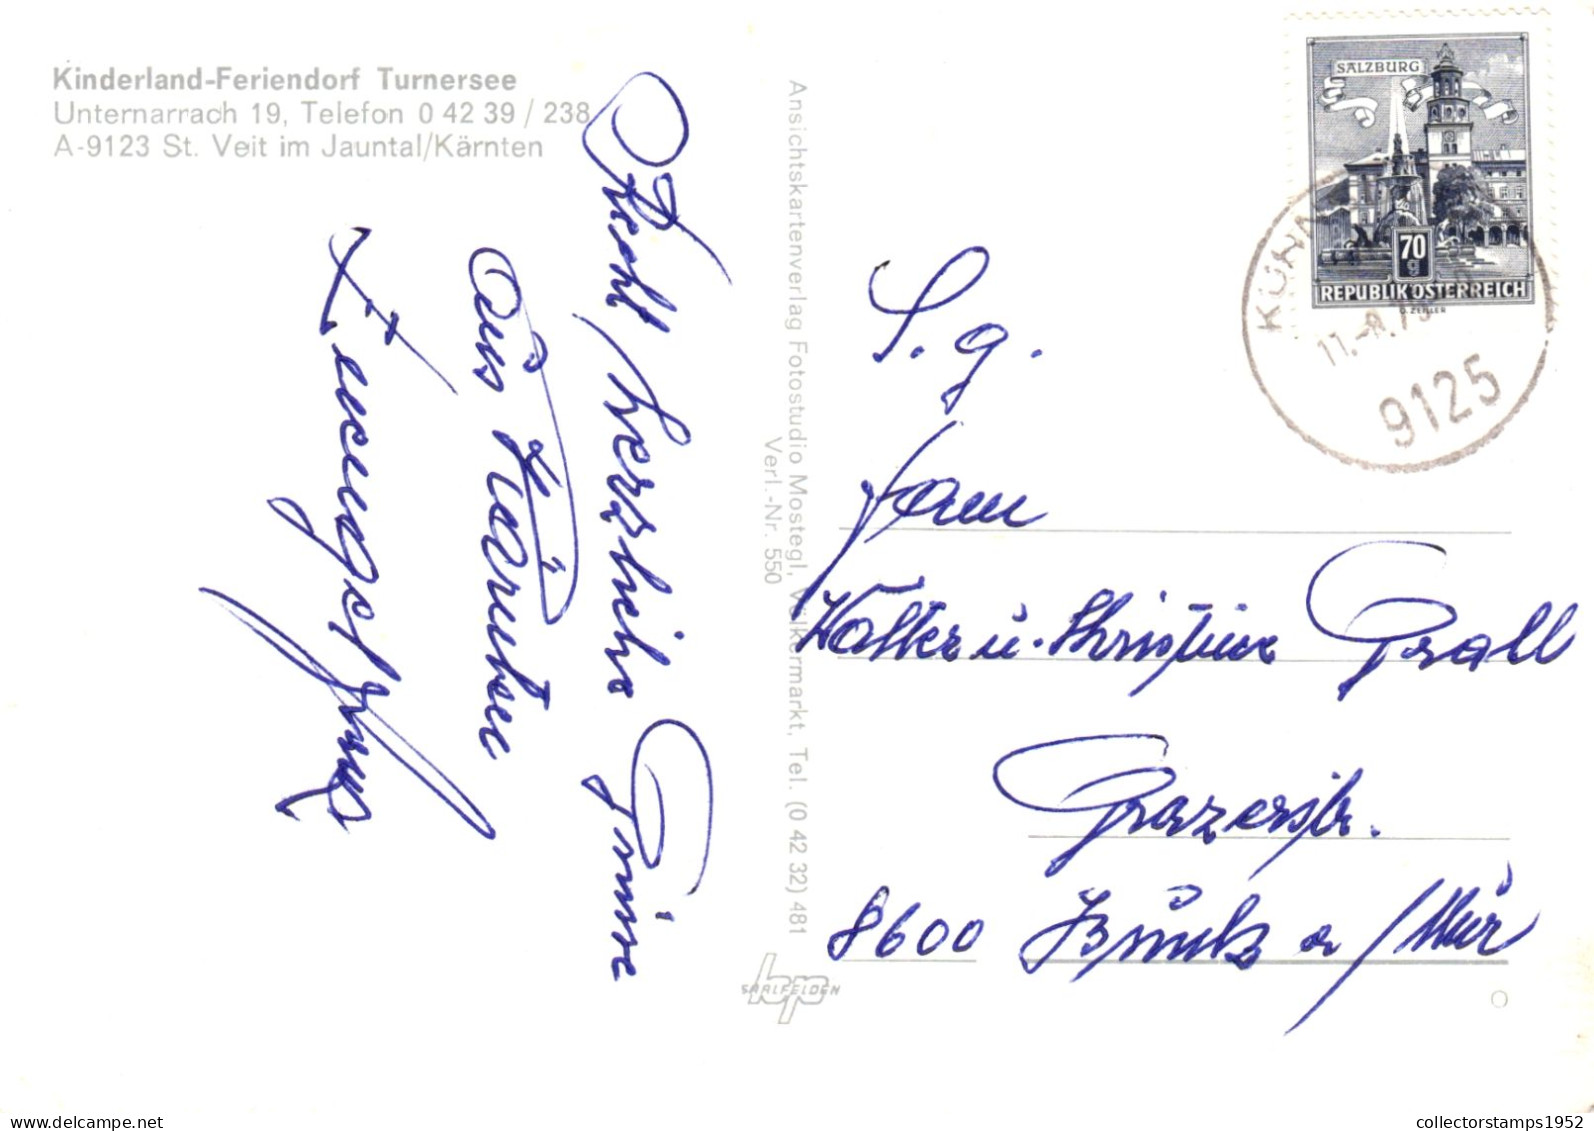 Kinderland-Feriendorf Turnersee
Unternarrach 19, Telefon 0 42 39 / 238
A-9123 St. Veit im Jauntal/Kärnten
Recht herzliche Grüsse
aus Kärnten
Ansichtskartenverlag Fotostudio Mostegl, Völkermarkt, Tel. (0 42 32) 481
Verl.-Nr. 550
SAALFELDEN
SALZBURG
70
g
REPUBLIK ÖSTERREICH
O. ZEILLER
KÜHN
9125
S. g.
Fam
Walter u. Christine Prall
Grazerstr.
8600 Bruck a/Mur
collectorstamps1952